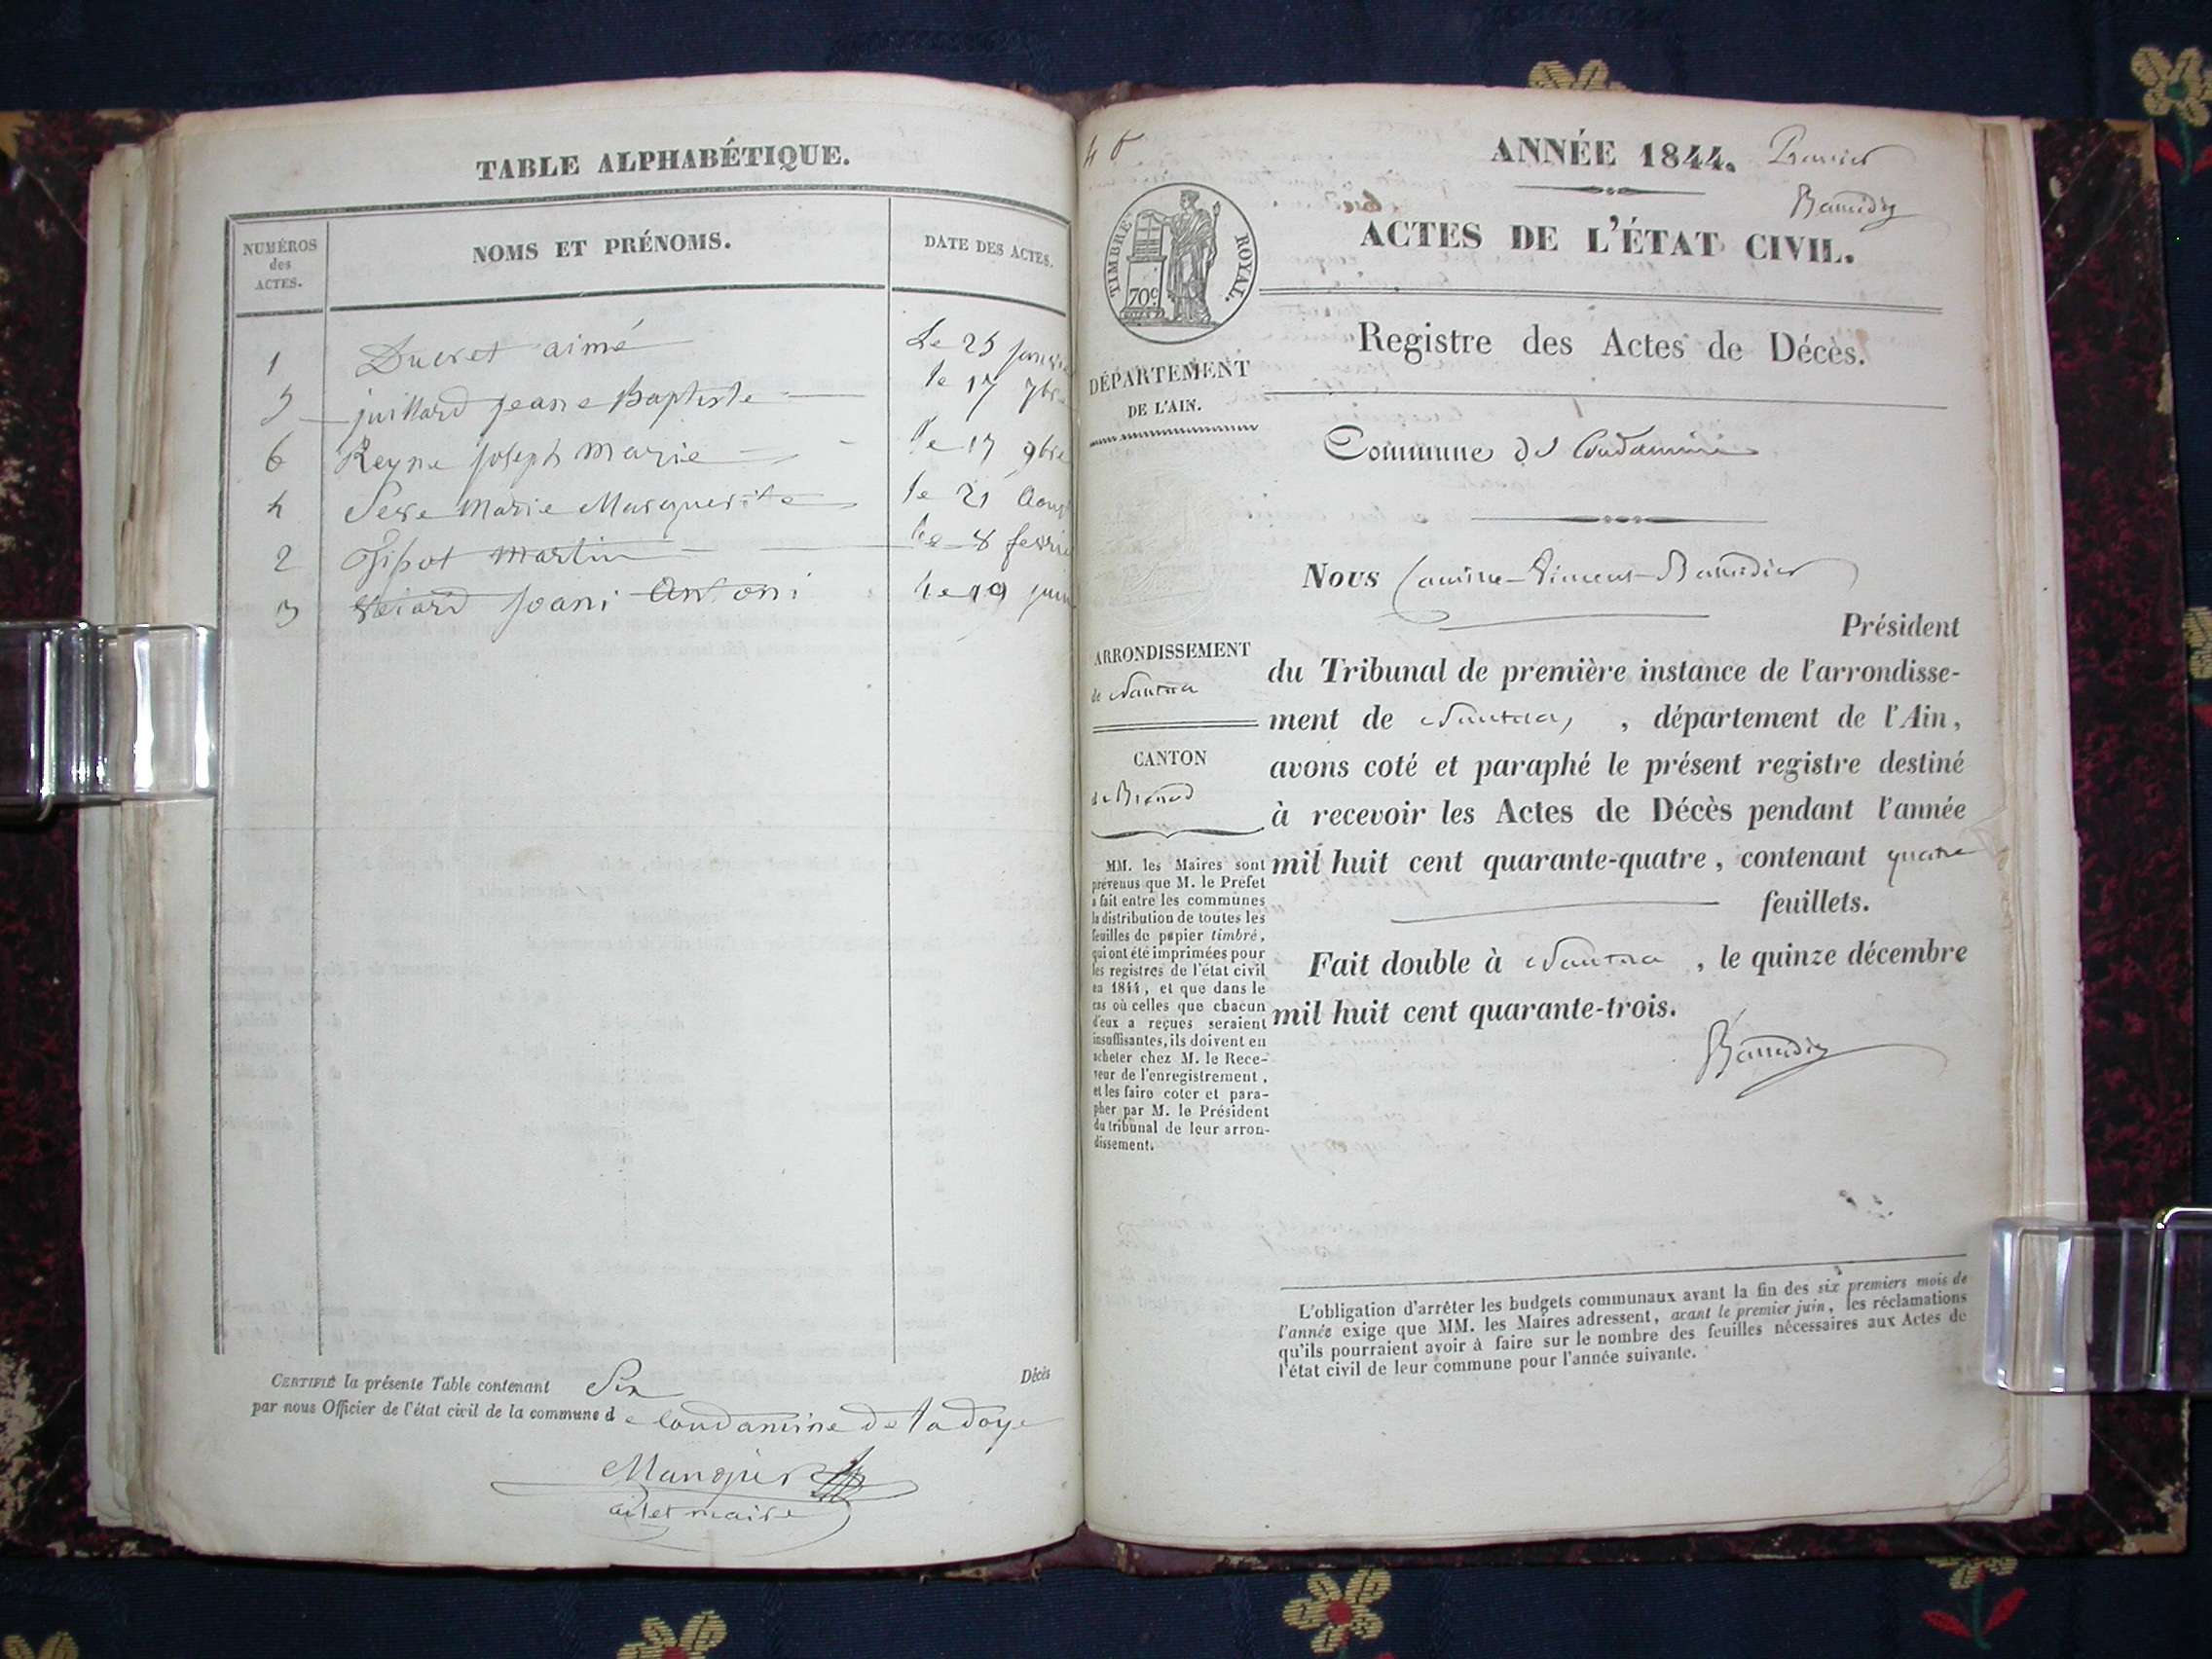 TABLE ALPHABÉTIQUE.
NUMÉROS
des
ACTES.
NOMS ET PRÉNOMS.
DATE DES ACTES.
1 Ducret aimé Le 25 janvie
5 juillard jeane Baptiste le 17 7bre
6 Reyne joseph Marie le 17 9bre
4 Marie Marguerite le 21 Aout
2 Martin le 8 fevrie
3 joani Antoni le 19 juin
CERTIFIÉ la présente Table contenant Six Décès
par nous Officier de l'état civil de la commune de Condamine de la doye
ANNÉE 1844. Premier
TIMBRE ROYAL.
70c
ACTES DE L'ÉTAT CIVIL.
Registre des Actes de Décès.
DÉPARTEMENT
DE L'AIN.
Commune de Condamine
ARRONDISSEMENT
de Nantua
CANTON
de Brenod
MM. les Maires sont
prévenus que M. le Préfet
a fait entre les communes
la distribution de toutes les
feuilles de papier timbré,
qui ont été imprimées pour
les registres de l'état civil
en 1844, et que dans le
cas où celles que chacun
d'eux a reçues seraient
insuffisantes, ils doivent en
acheter chez M. le Rece-
veur de l'enregistrement,
et les faire coter et para-
pher par M. le Président
du tribunal de leur arron-
dissement.
Nous
Président
du Tribunal de première instance de l'arrondisse-
ment de Nantua, département de l'Ain,
avons coté et paraphé le présent registre destiné
à recevoir les Actes de Décès pendant l'année
mil huit cent quarante-quatre, contenant quatre
feuillets.
Fait double à Nantua, le quinze décembre
mil huit cent quarante-trois.
L'obligation d'arrêter les budgets communaux avant la fin des six premiers mois de
l'année exige que MM. les Maires adressent, avant le premier juin, les réclamations
qu'ils pourraient avoir à faire sur le nombre des feuilles nécessaires aux Actes de
l'état civil de leur commune pour l'année suivante.